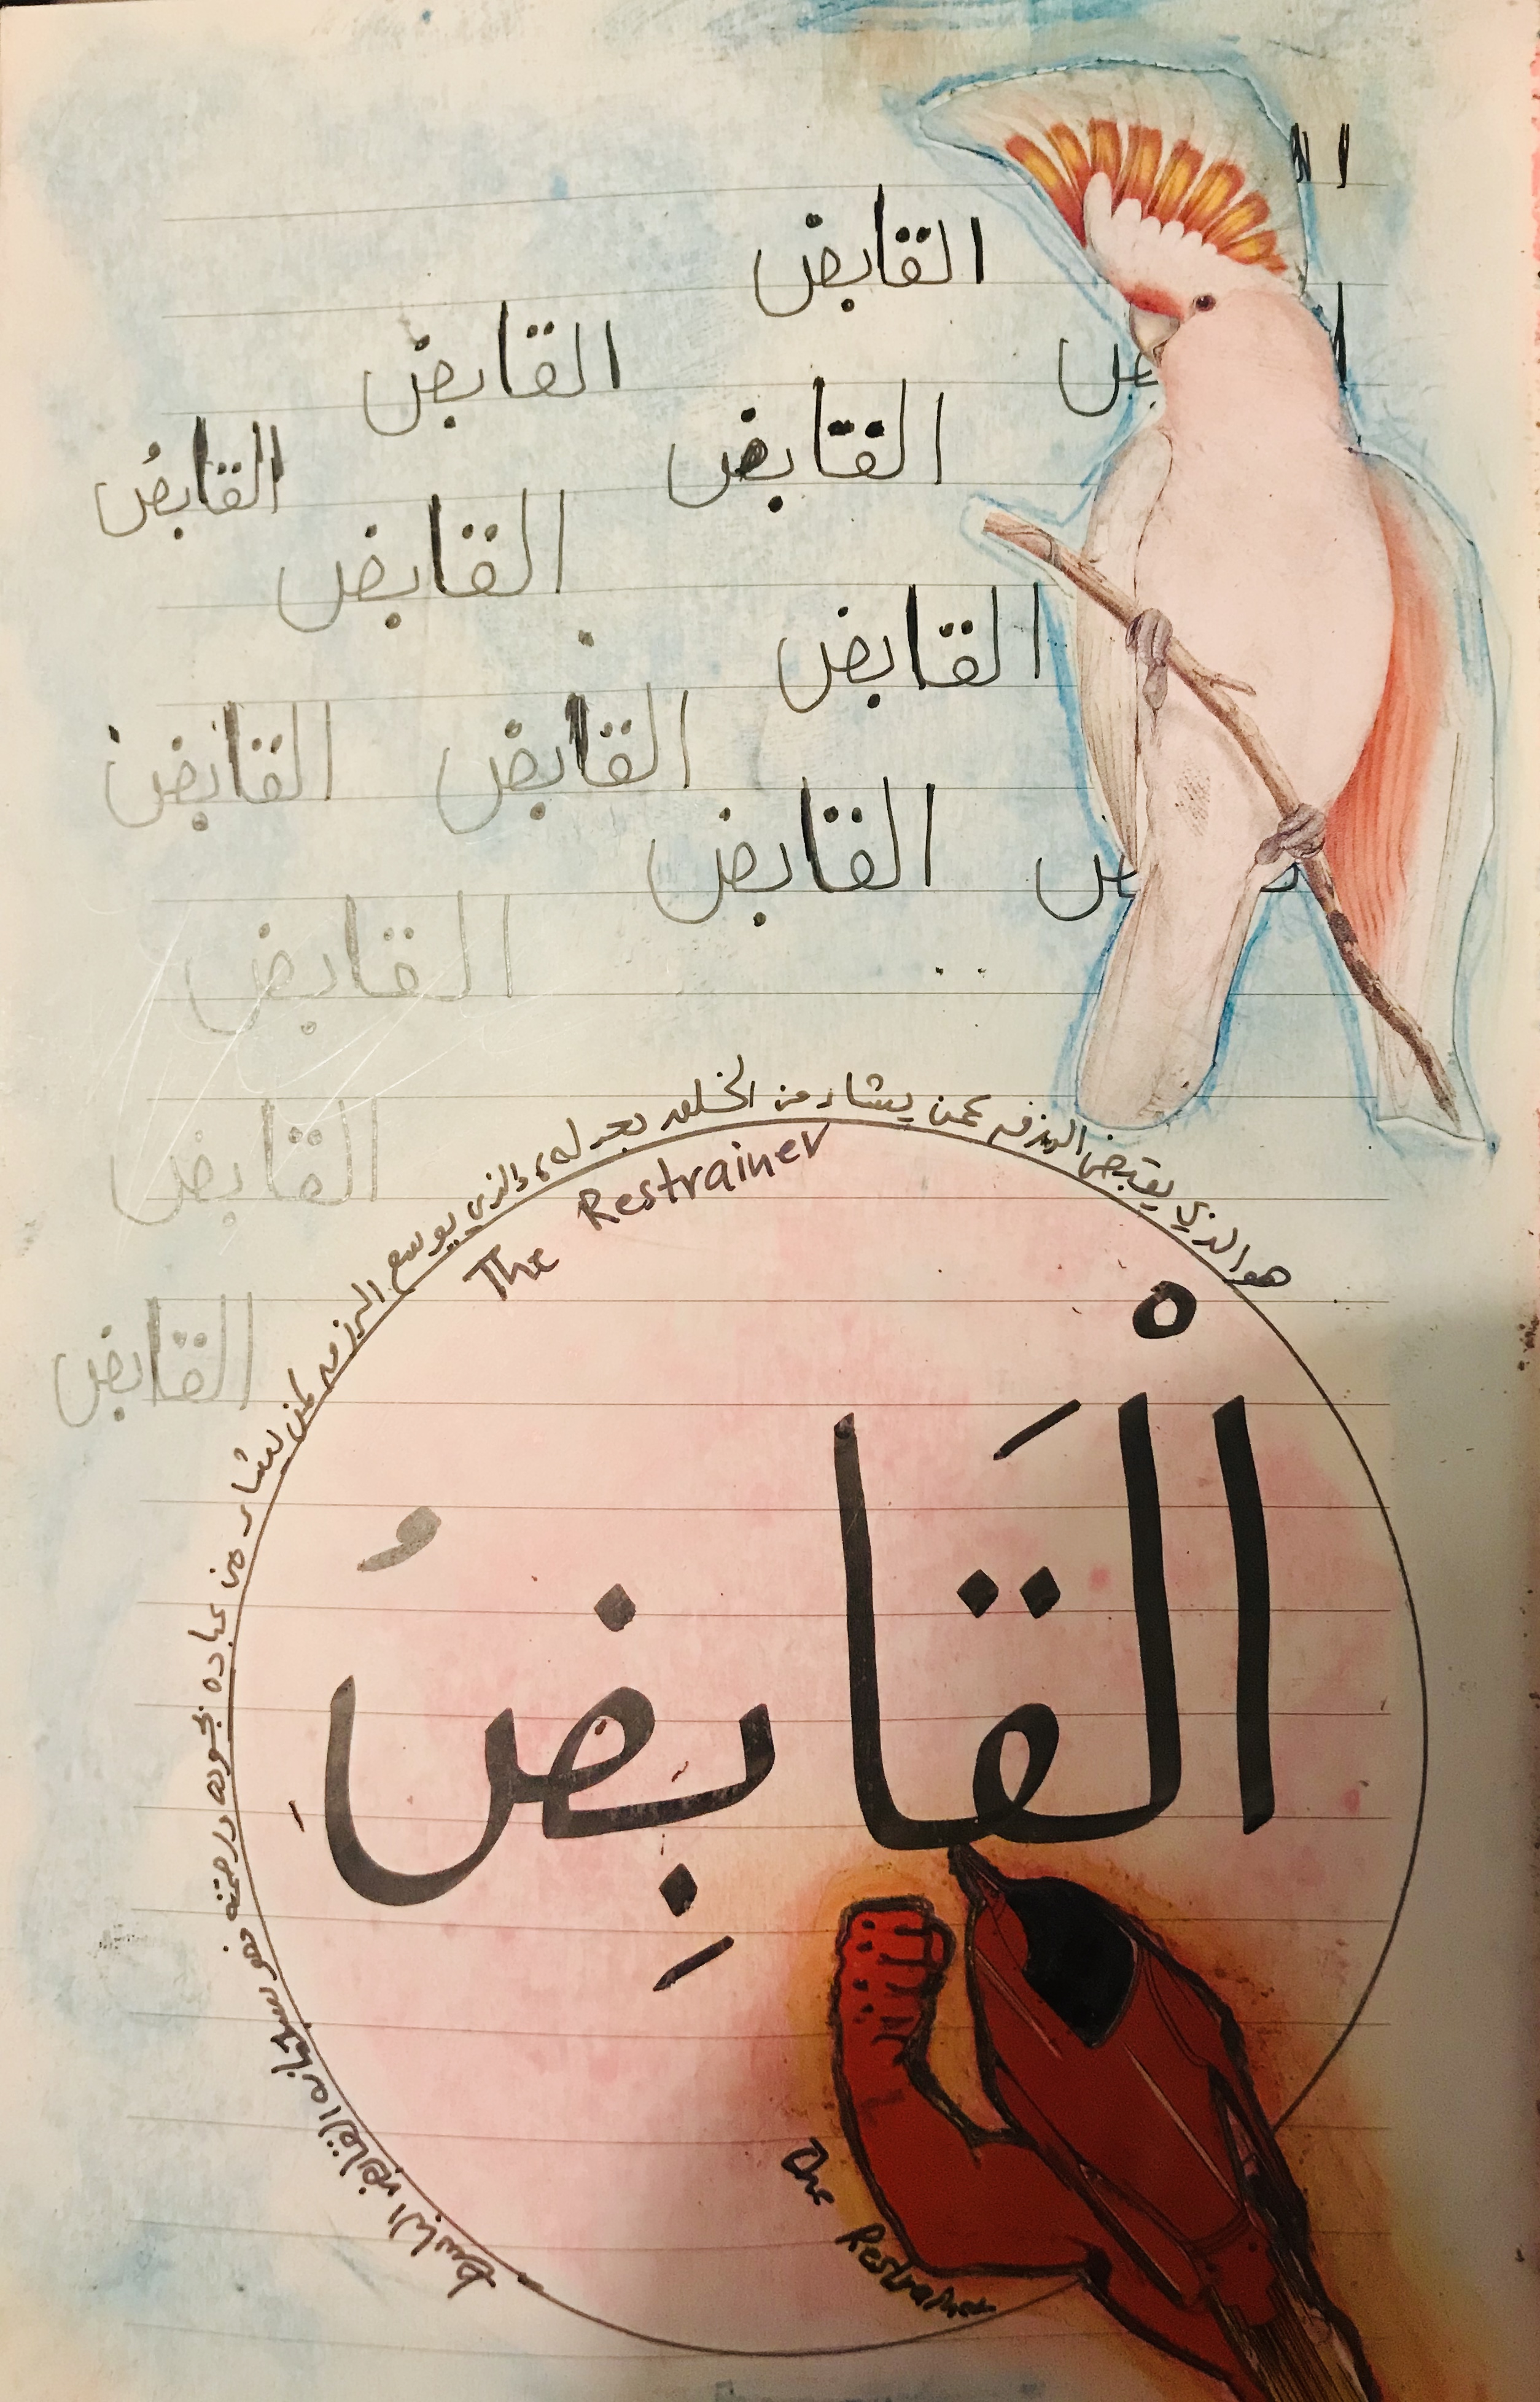 ال
القابض
القابض
القابض
القابضُ
القابض
القابض
القابض
القابض
القابض
القابض
القابض
القابض
القابض
هو الذي يقبض الرزق عمن يشاء من الخلق بعدله، والذي يوسع الرزق لمن يشاء من عباده بجوده ورحمته فهو سبحانه القابض الباسط
The Restrainer
الْقَابِضُ
The Restrainer